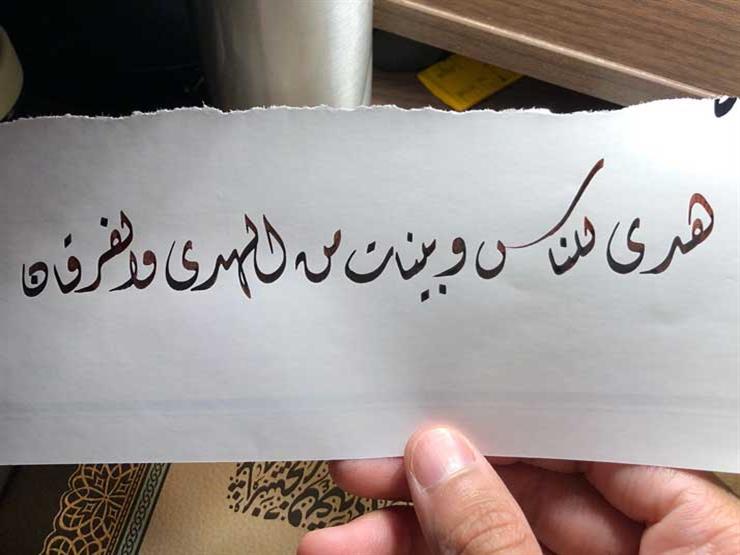 هدى للناس وبينات من الهدى والفرقان